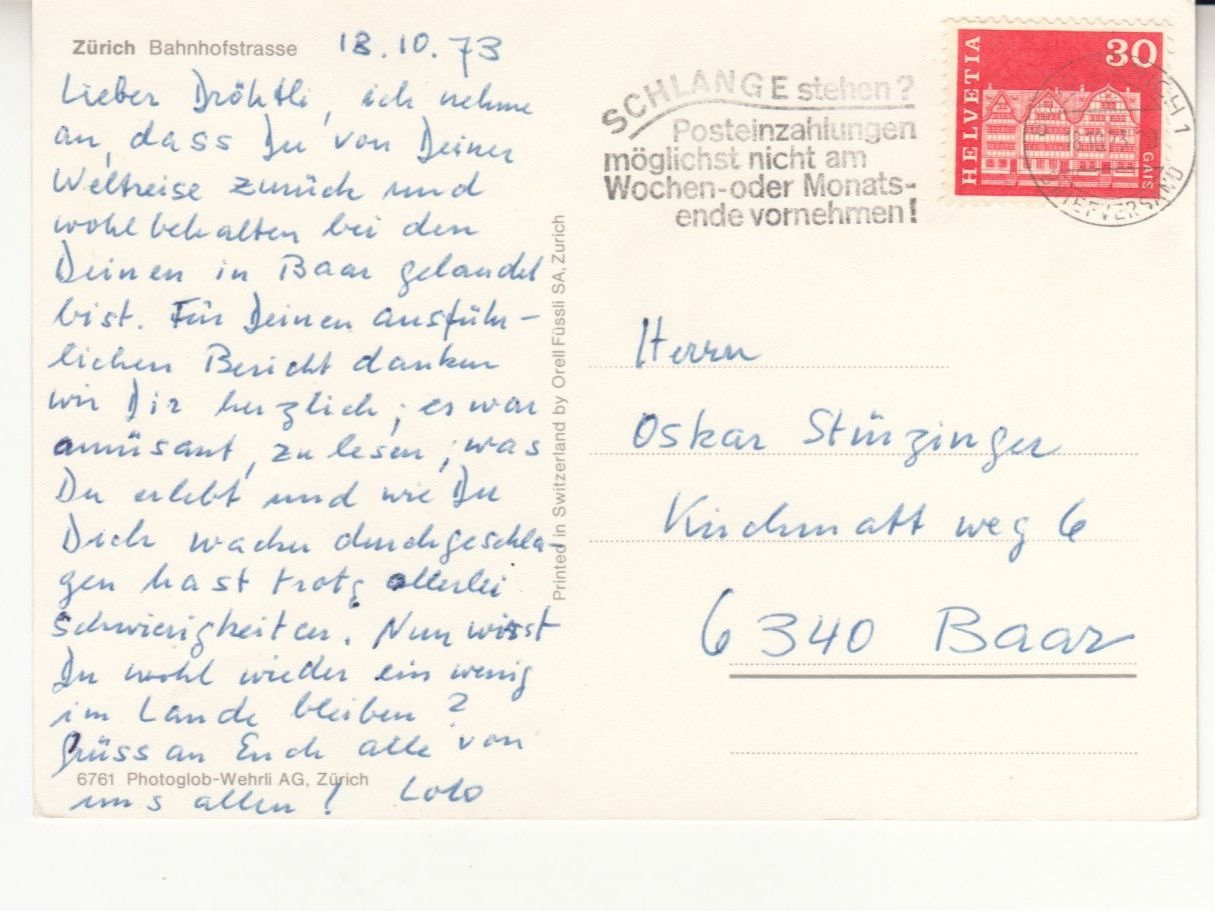 Zürich Bahnhofstrasse 18.10.73
Lieber Dröhtli, ich nehme
an, dass Du von Deiner
Weltreise zurück und
wohlbehalten bei den
Deinen in Baar gelandet
bist. Für Deinen ausführ-
lichen Bericht danken
wir Dir herzlich; es war
amüsant, zu lesen, was
Du erlebt und wie Du
Dich wacker durchgeschla-
gen hast trotz allerlei
Schwierigkeiten. Nun wirst
Du wohl wieder ein wenig
im Lande bleiben?
Grüss an Euch alle von
6761 Photoglob-Wehrli AG, Zürich
uns allen! Lolo
Printed in Switzerland by Orell Füssli SA, Zurich
SCHLANGE stehen?
Posteinzahlungen
möglichst nicht am
Wochen-oder Monats-
ende vornehmen!
HELVETIA
30
GAIS
BRIEFVERSAND
Herrn
Oskar Stürzinger
Kirchmattweg 6
6340 Baar